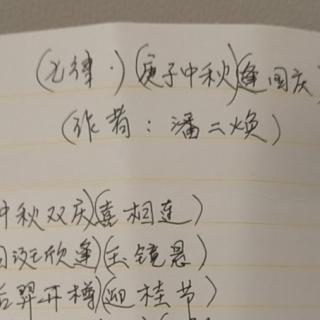 (七律·)(庚子中秋)(逢国庆
(作者:潘二焕)
中秋双庆)(喜相连)
欣逢)(玉镜悬)
后羿开樽)(迎桂节)